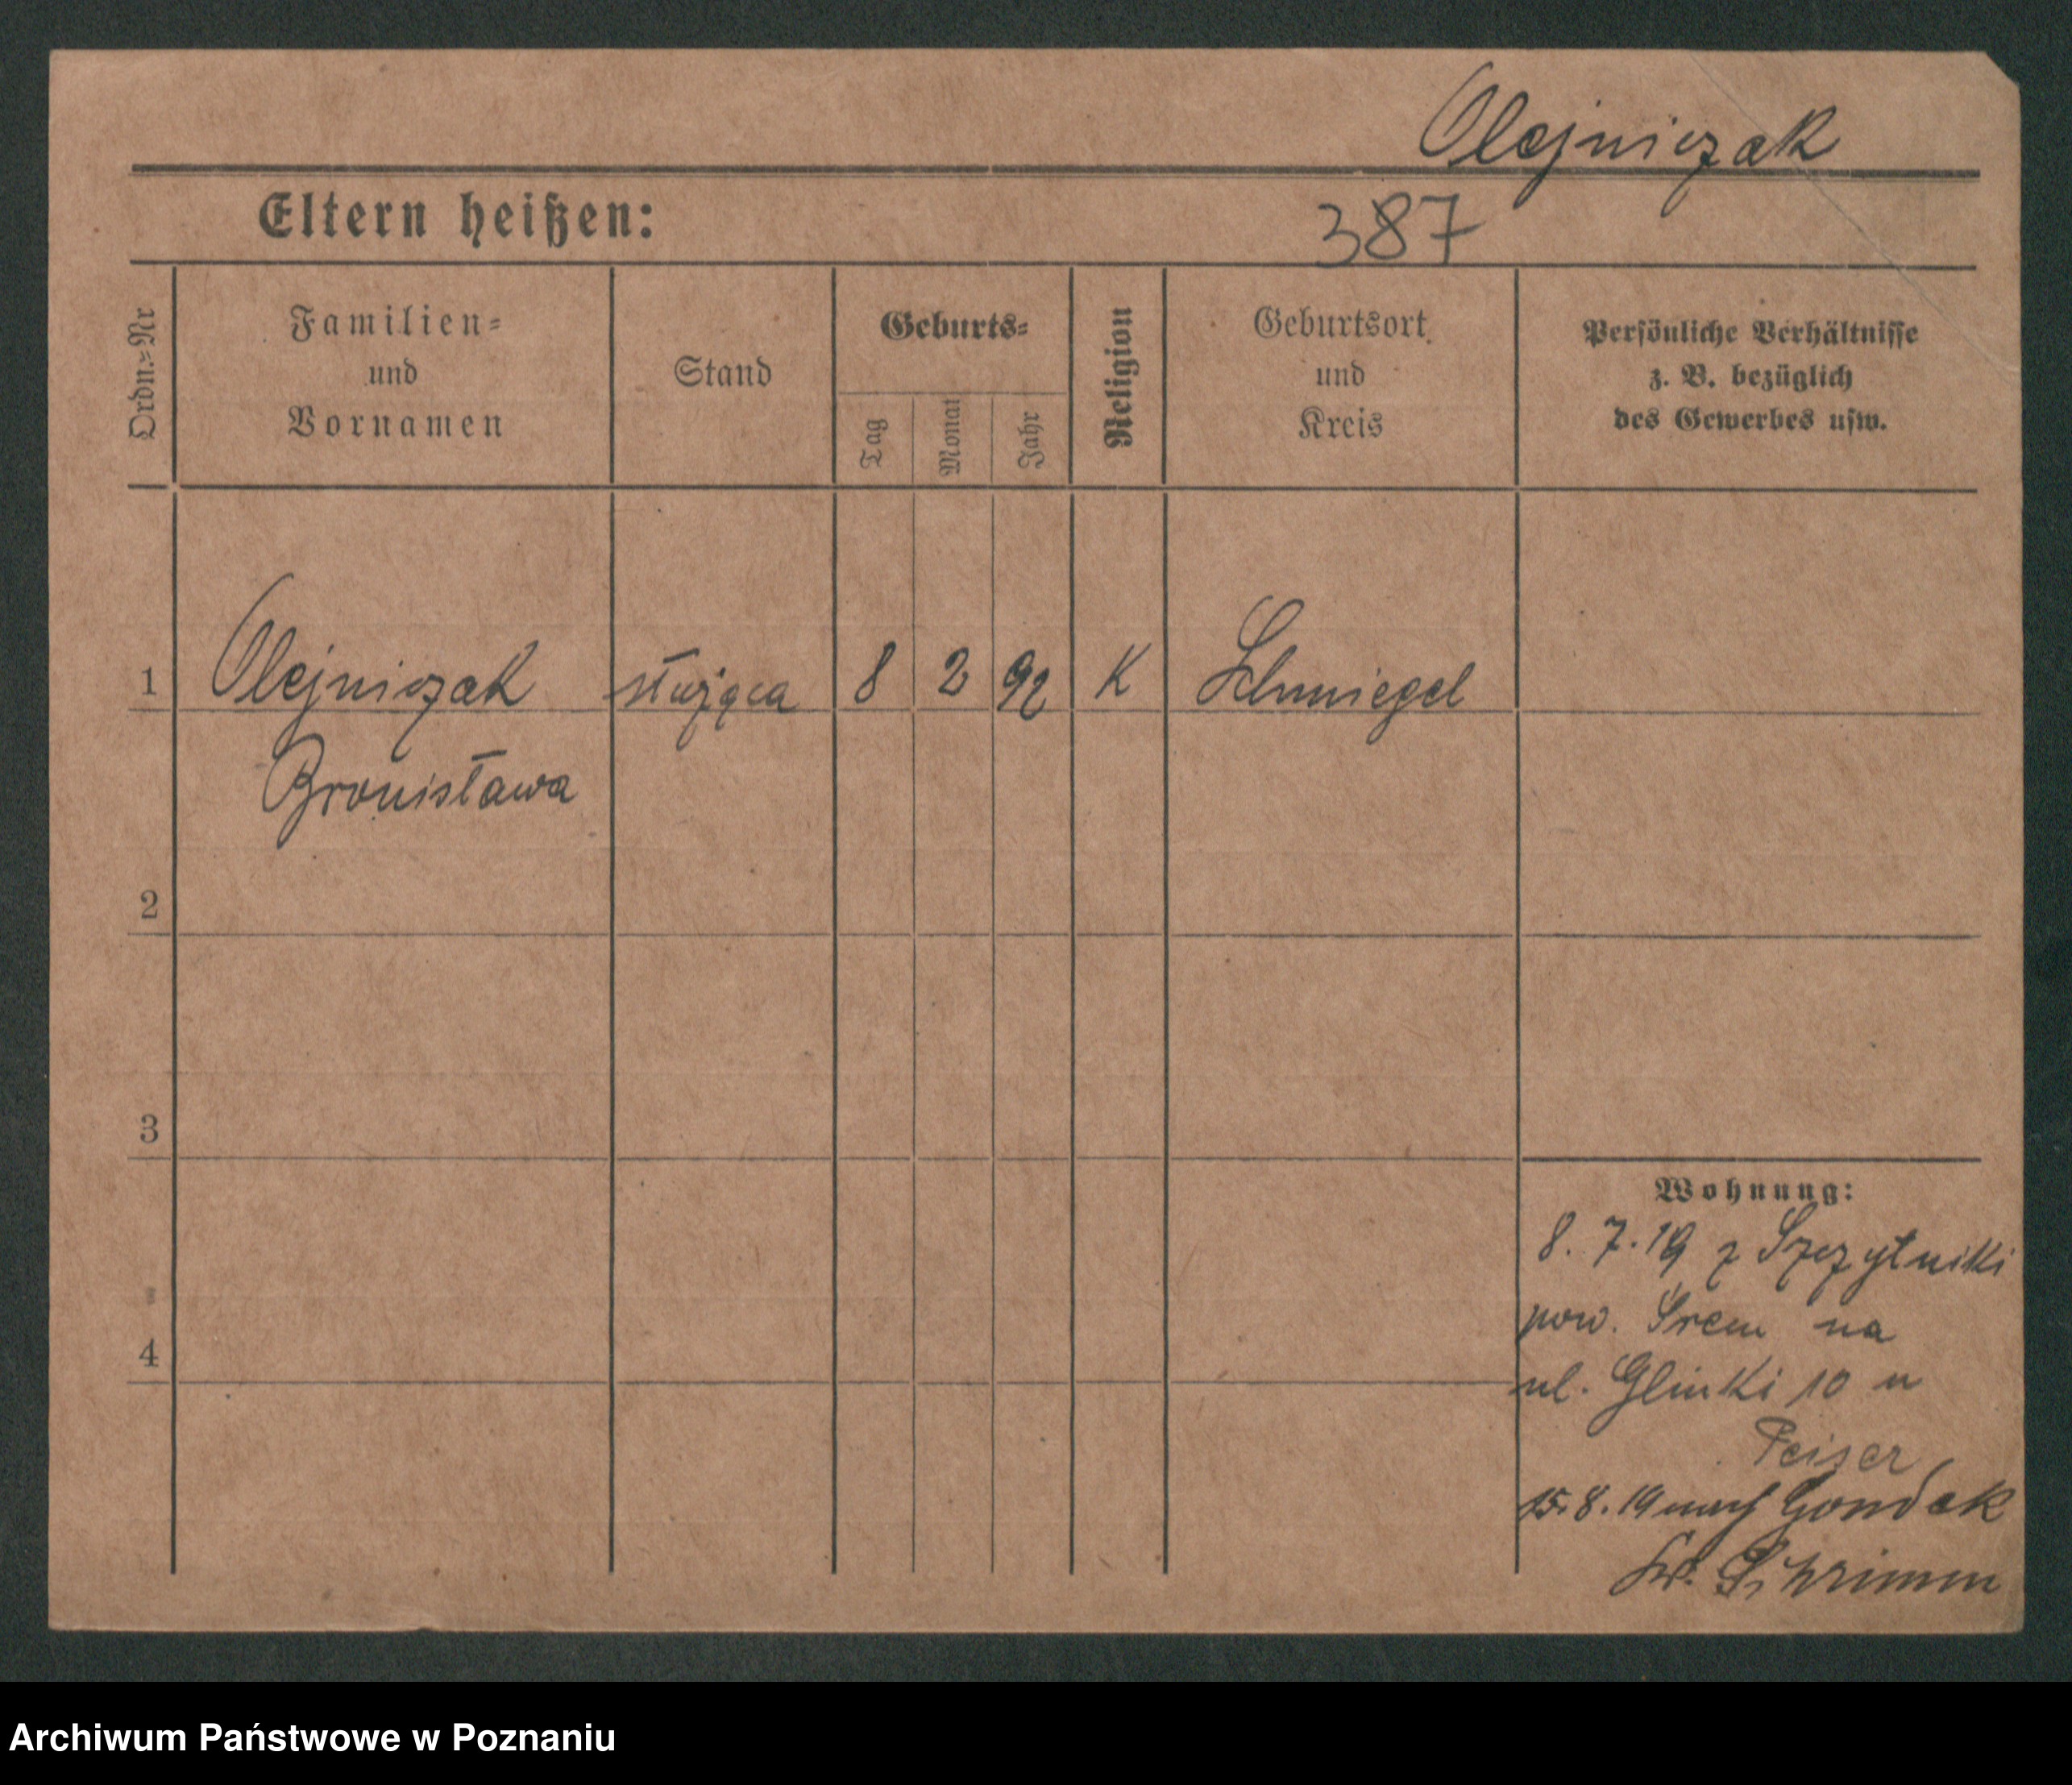 Olejniczak
Eltern heißen:
387
Ordn.-Nr
Familien-
und
Vornamen
Stand
Geburts-
Tag
Monat
Jahr
Religion
Geburtsort
und
Kreis
Persönliche Verhältnisse
z. B. bezüglich
des Gewerbes usw.
1 Olejniczak służąca 8 2 92 K Schmiegel
Bronisława
2
3
4
Wohnung:
8. 7. 19 z Szczytniki
pow. Śrem na
ul. Glinki 10 u
Peiser
15. 8. 19 nach Gondek
Kr. Schrimm
Archiwum Państwowe w Poznaniu